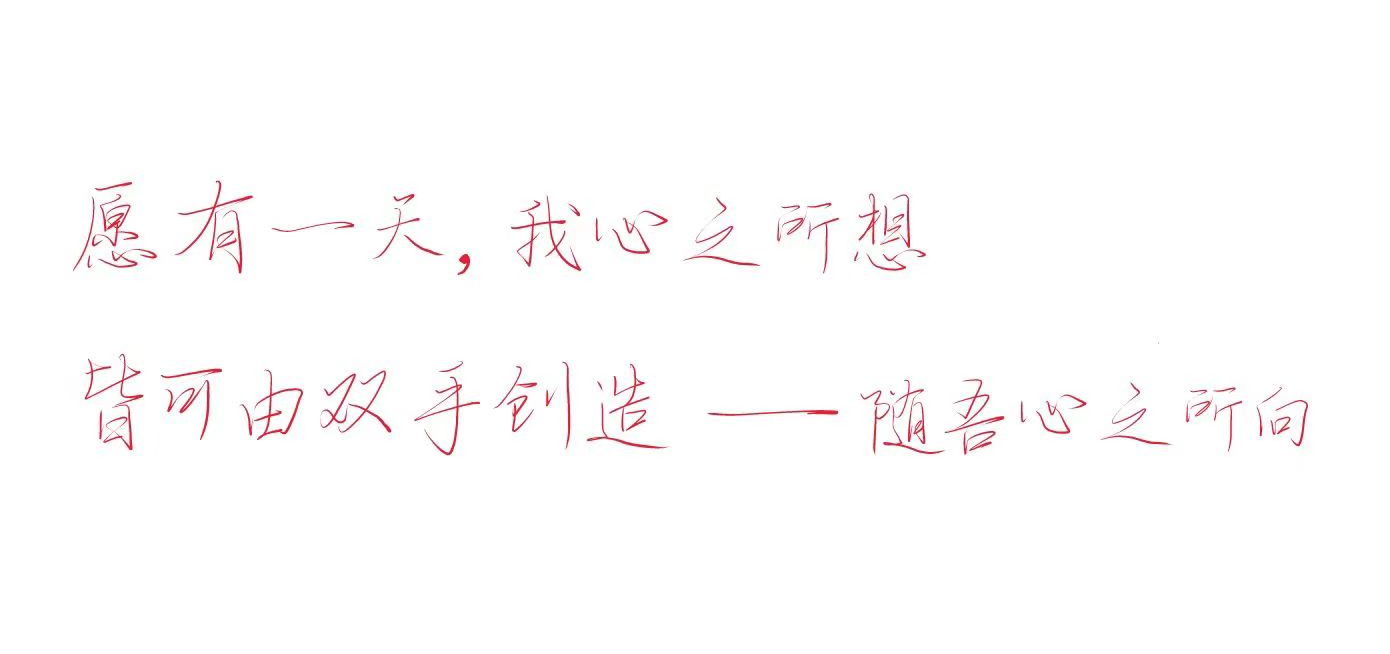 愿有一天，我心之所想
皆可由双手创造 —— 随吾心之所向